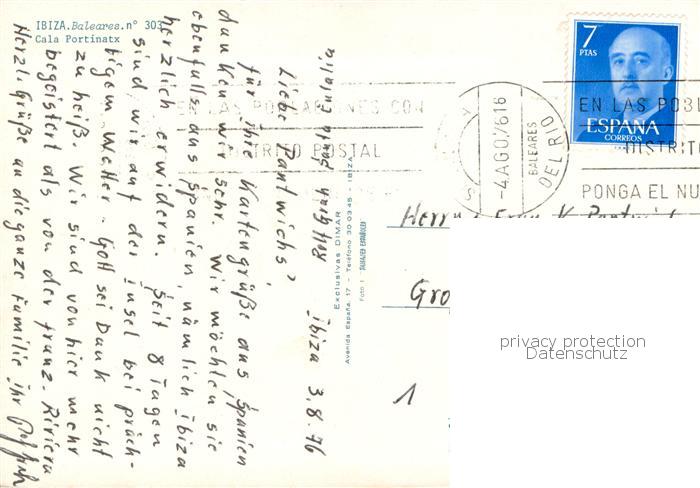 IBIZA.Baleares.n° 303
Cala Portinatx
7
PTAS
ESPAÑA
CORREOS
EN LAS POBLACIONES CON
DISTRITO POSTAL
-4AGO.76 16
BALEARES
DEL RIO
EN LAS POBL
DISTRITO
PONGA EL NU
Ibiza 3.8.76
Liebe Pantwichs!
für Ihre Kartengrüße aus Spanien
danken wir sehr. Wir möchten sie
ebenfalls aus Spanien, nämlich Ibiza
herzlich erwidern. Seit 8 Tagen
sind wir auf der Insel bei präch-
tigem Wetter. Gott sei Dank nicht
zu heiß. Wir sind von hier mehr
begeistert als von der franz. Riviera
Herzl. Grüße an die ganze Familie Ihr
Exclusivas DIMAR
Avenida España, 17 - Teléfono 30 03 45 - IBIZA
Foto:
Herrn
Gro
1
privacy protection
Datenschutz